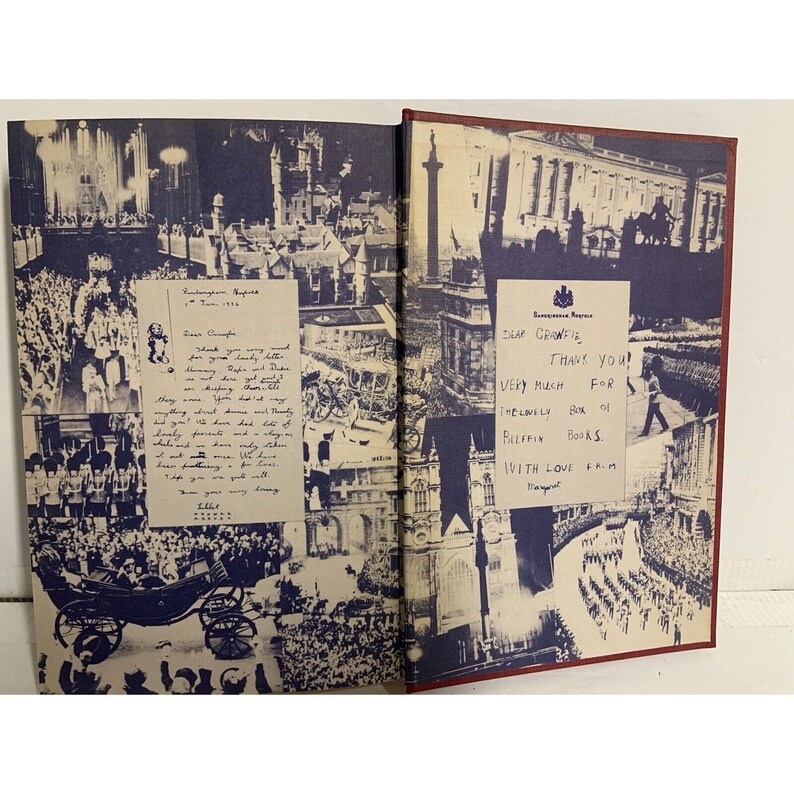 Sandringham, Norfolk
1st Jan. 1936
Dear Crawfie,
Thank you very much
for your lovely letter.
Mummy, Papa and
are not here yet and I
am keeping them till
they come. You did'nt say
anything about and
did you? We have had lots of
lovely presents and a on
wheels and we have only taken
it out once. We have
been a for
I hope you are quite well.
from your very loving
Lilibet
xxxxxx
xxxxxx
SANDRINGHAM, NORFOLK
DEAR CRAWFIE
THANK YOU
VERY MUCH FOR
THE LOVELY BOX OF
BOOKS.
WITH LOVE FROM
Margaret